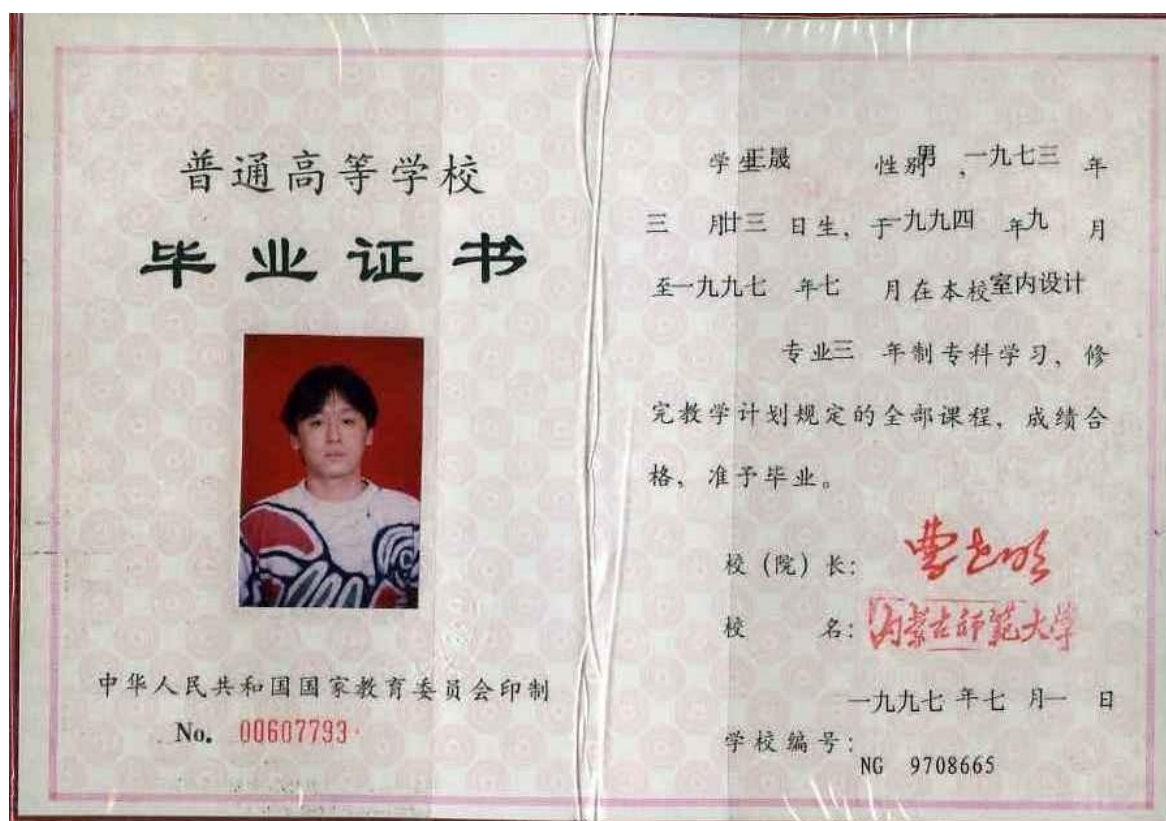 普通高等学校
毕业证书
中华人民共和国国家教育委员会印制
No. 00607793
学生王晟 性别男，一九七三年
三月廿三日生，于一九九四年九月
至一九九七年七月在本校室内设计
专业三年制专科学习，修
完教学计划规定的全部课程，成绩合
格，准予毕业。
校（院）长：
校名：内蒙古师范大学
一九九七年七月一日
学校编号：
NG 9708665